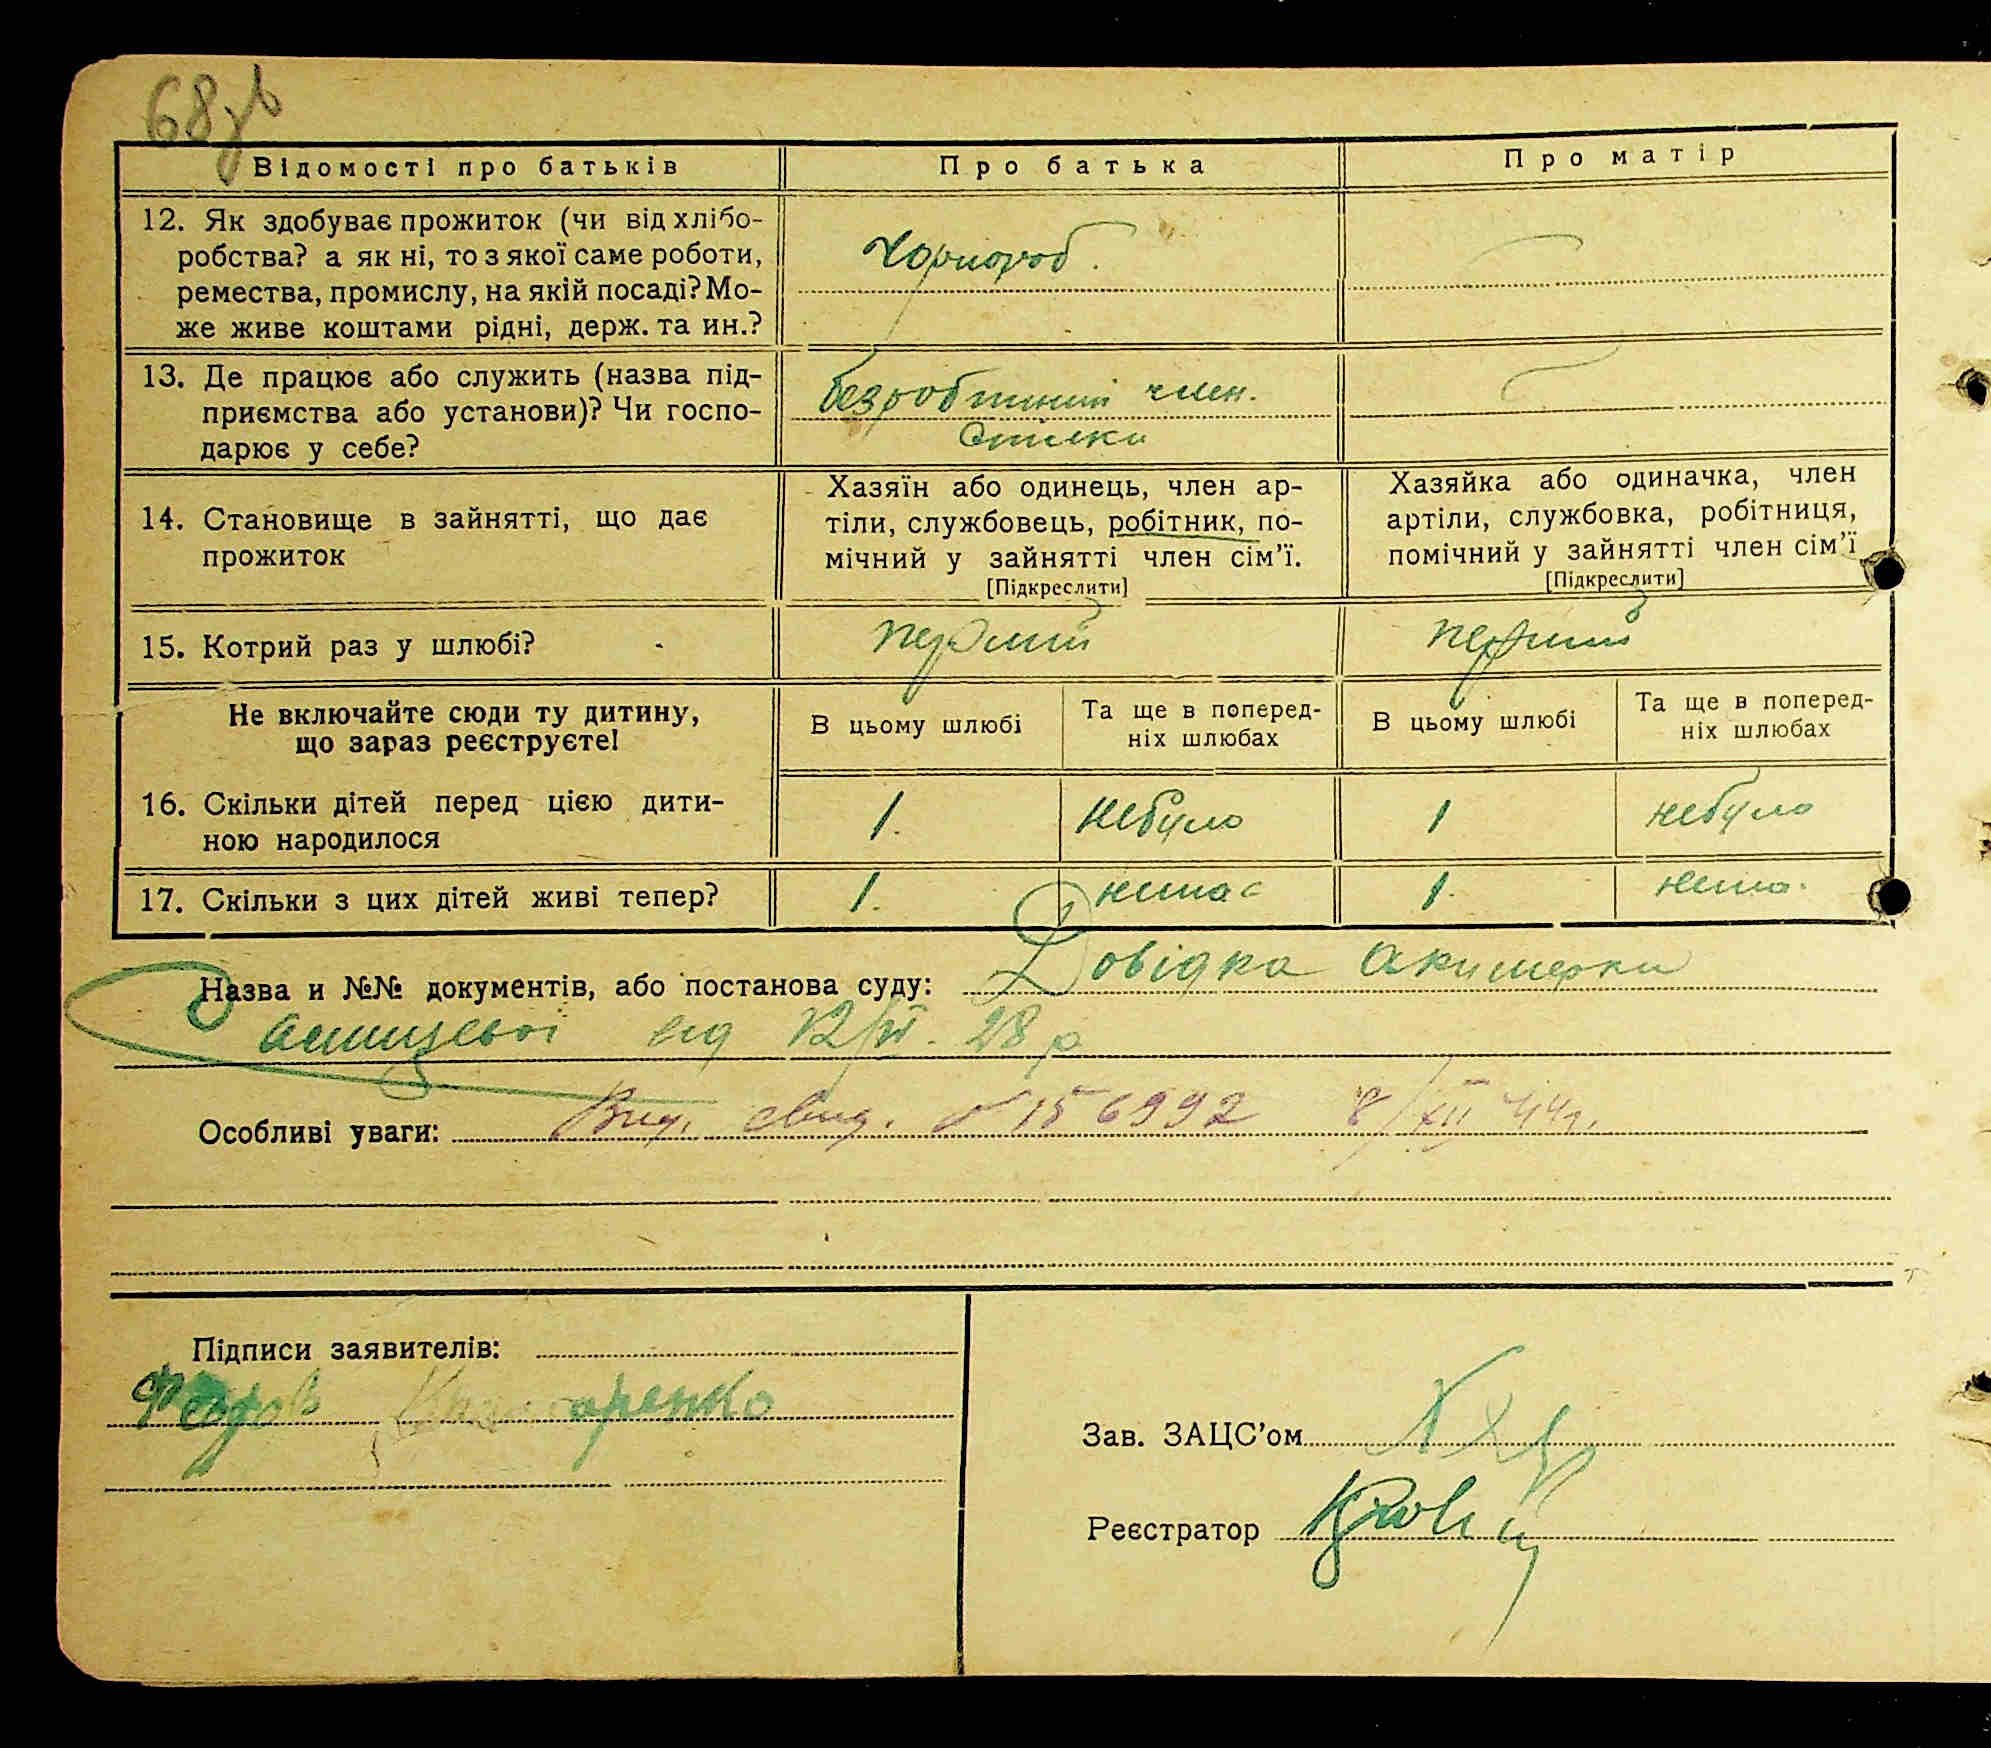 68зв
Відомості про батьків
Про батька
Про матір
12. Як здобуває прожиток (чи від хлібо-
робства? а як ні, то з якої саме роботи,
ремества, промислу, на якій посаді? Мо-
же живе коштами рідні, держ. та ин.?
Чорнороб.
13. Де працює або служить (назва під-
приємства або установи)? Чи госпо-
дарює у себе?
безробтний член.
Спілки
14. Становище в зайнятті, що дає
прожиток
Хазяїн або одинець, член ар-
тіли, службовець, робітник, по-
мічний у зайнятті член сім'ї.
[Підкреслити]
Хазяйка або одиначка, член
артіли, службовка, робітниця,
помічний у зайнятті член сім'ї
[Підкреслити]
15. Котрий раз у шлюбі?
перший
перший
Не включайте сюди ту дитину,
що зараз реєструєте!
В цьому шлюбі
Та ще в поперед-
ніх шлюбах
В цьому шлюбі
Та ще в поперед-
ніх шлюбах
16. Скільки дітей перед цією дити-
ною народилося
1.
небуло
1
небуло
17. Скільки з цих дітей живі тепер?
1.
немає
1.
нема.
Назва и №№ документів, або постанова суду: Довідка Акушерки
від 12/VI. 28 р
Особливі уваги: Выд. свид. № 156992 8/XII 44г.
Підписи заявителів:
Зав. ЗАЦС'ом
Реєстратор